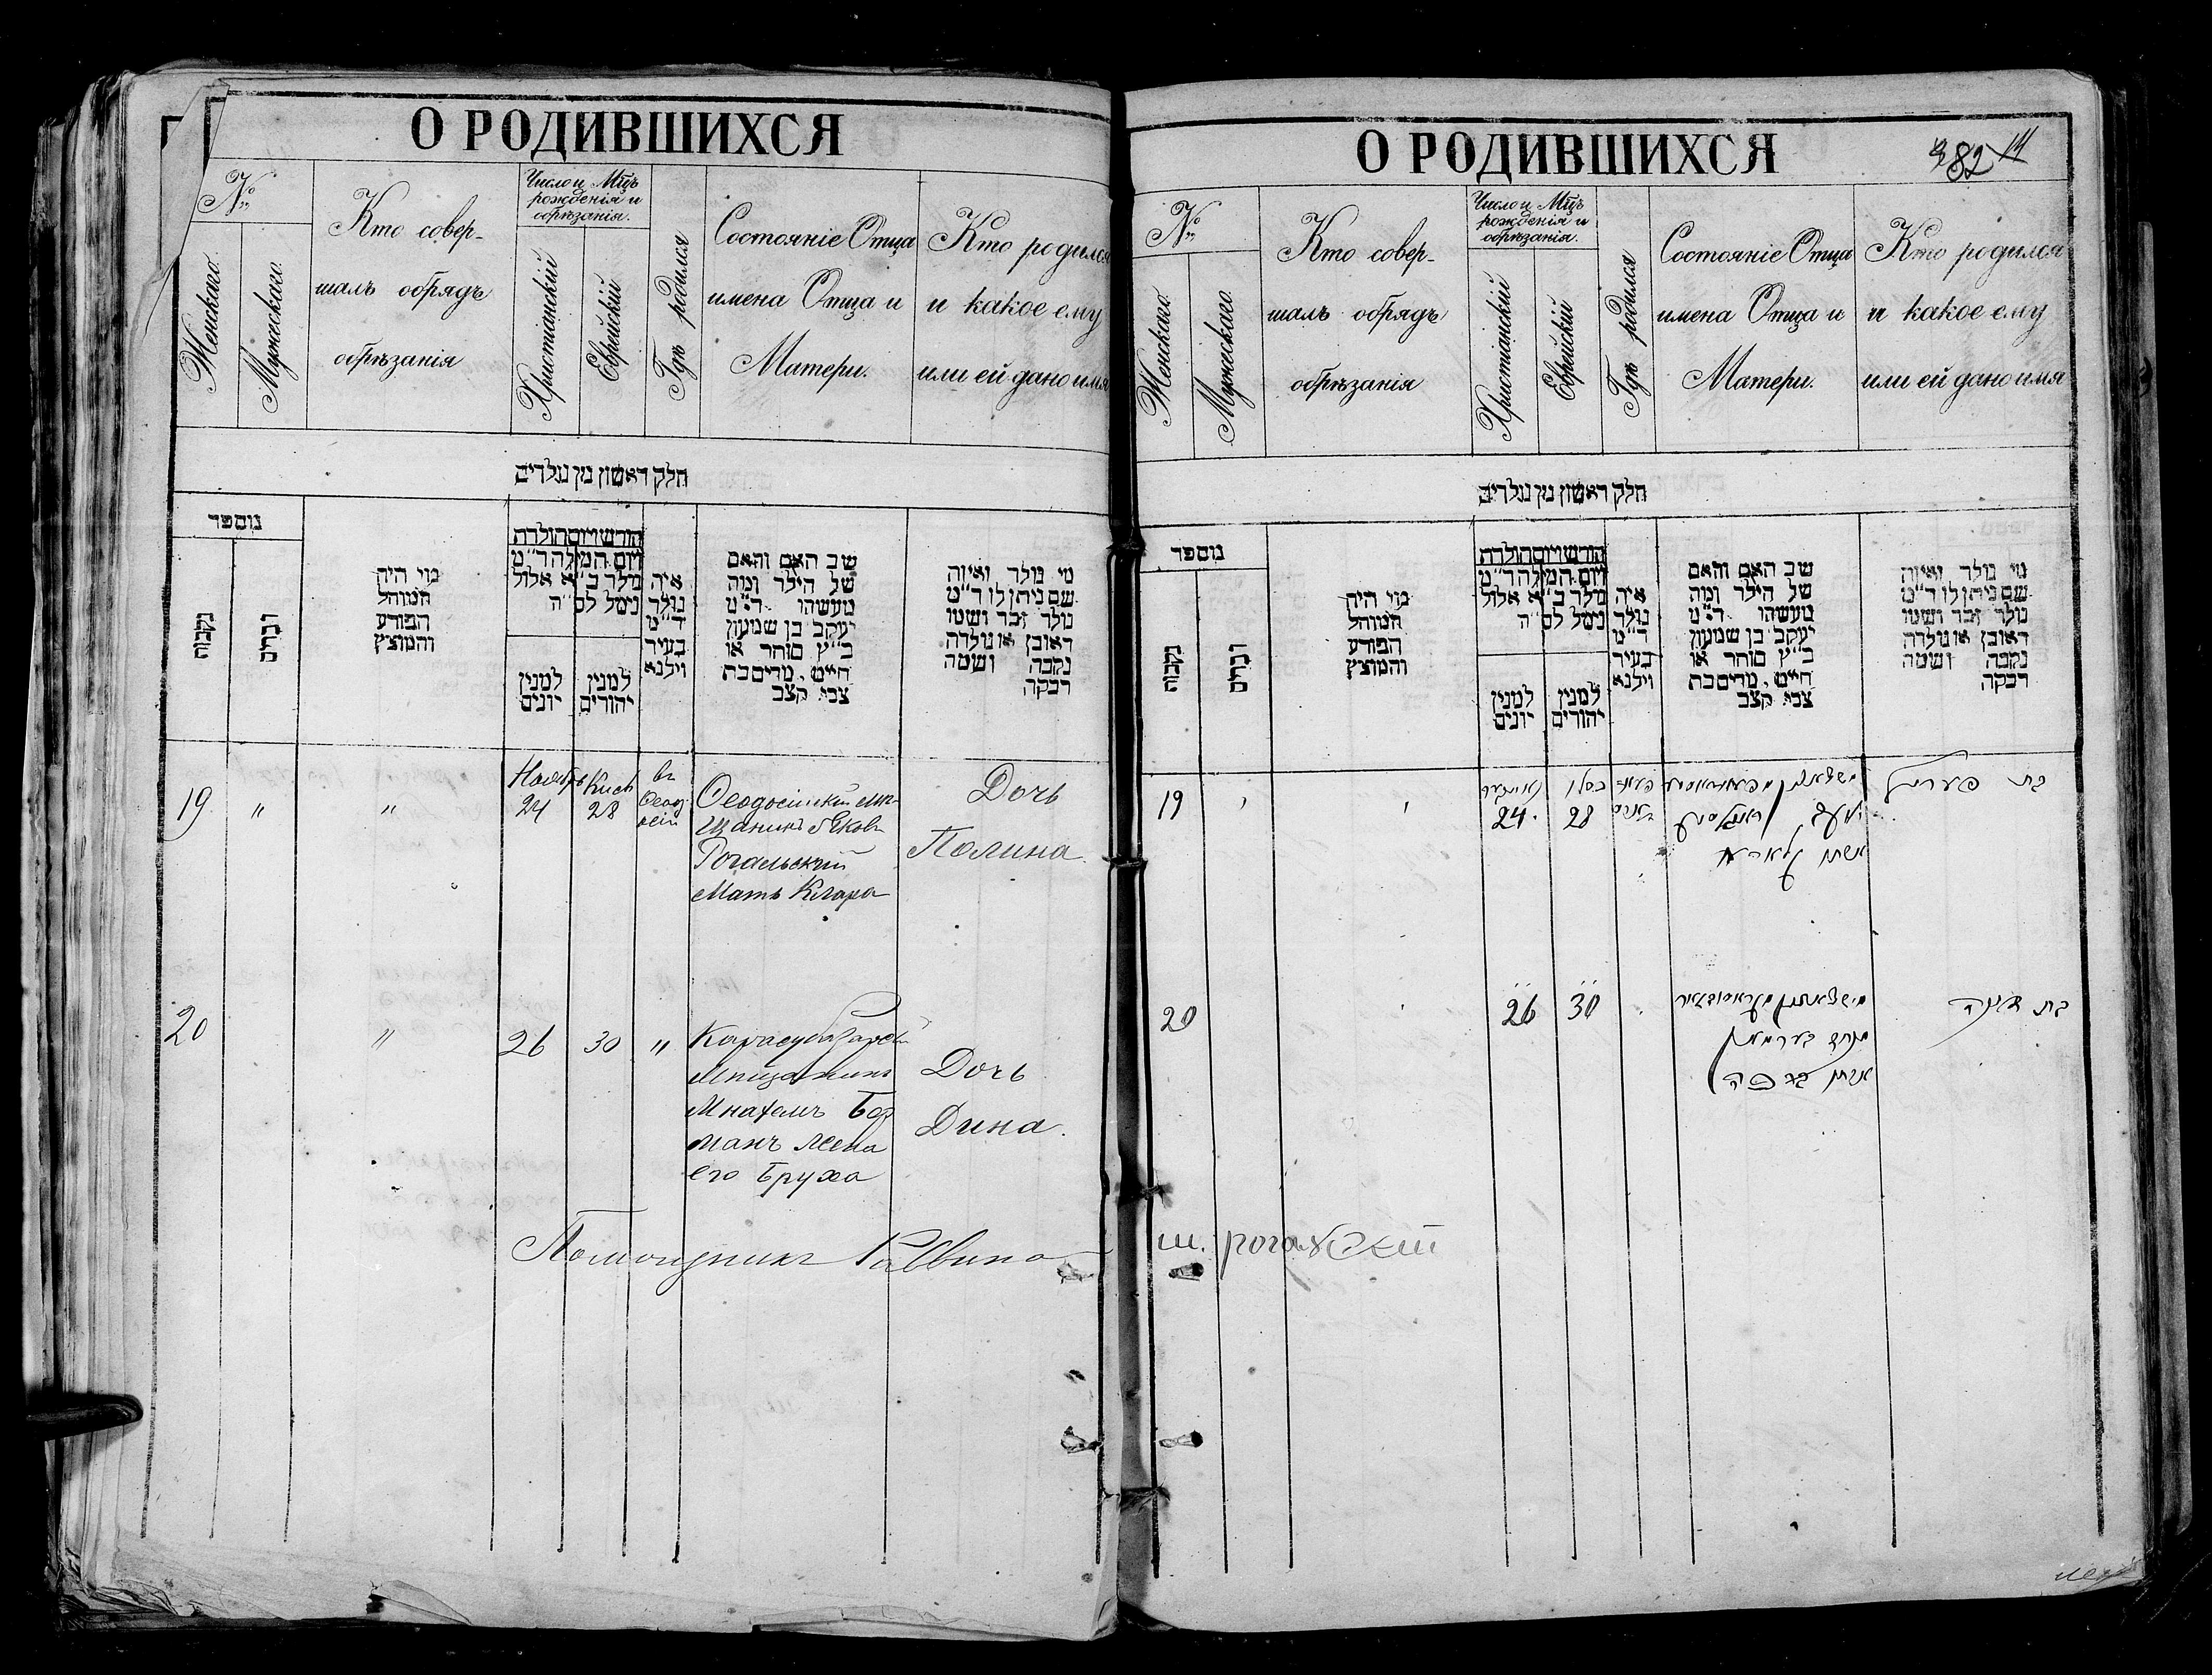 О РОДИВШИХСЯ
№
Женскаго.
Мужескаго.
Кто совер-
шалъ обрядъ
обрѣзанія
Число и Мѣц.
рожденія и
обрѣзанія.
Христіанскій
Еврейскій
Гдѣ родился
Состояніе Отца
имена Отца и
Матери.
Кто родился
и какое ему
или ей дано имя
חלק ראשון מן נולדים
נוספר
נקבות
זכרים
מי היה
המוהל
הפורע
והמוצץ
חודש ויום הולדת
ויום המילה ד"מ
נולד כ"א אלול
נימל לס"ה
למנין
יונים
למנין
יהודים
איה
נולד
ד"מ
בעיר
ווילנא
שב האב והאם
של הילד ומה
מעשהו ד"מ
יעקב בן שמעון
כ"ץ סוחר או
חייט, מרים בת
צבי קצב
מי נולד ואיזה
שם ניתן לו ד"מ
נולד זכר ושמו
ראובן או נולדה
נקבה ושמה
רבקה
19 " "
Ноябрь
24
Кисл
28
въ
Ѳеод
осіи
Ѳеодосійскій мѣ-
щанинъ Яковъ
Рогальскій
Мать Клара
Дочь
Полина.
20 " 26 30 "
Карасубазарскій
мѣщанинъ
Мнахемъ Бер
манъ жена
его Бруха
Дочь
Дина.
Помощникъ Раввина
О РОДИВШИХСЯ
382
14
№
Женскаго.
Мужескаго.
Кто совер-
шалъ обрядъ
обрѣзанія
Число и Мѣц.
рожденія и
обрѣзанія.
Христіанскій
Еврейскій
Гдѣ родился
Состояніе Отца
имена Отца и
Матери.
Кто родился
и какое ему
или ей дано имя
חלק ראשון מן נולדים
נוספר
נקבות
זכרים
מי היה
המוהל
הפורע
והמוצץ
חודש ויום הולדת
ויום המילה ד"מ
נולד כ"א אלול
נימל לס"ה
למנין
יונים
למנין
יהודים
איה
נולד
ד"מ
בעיר
ווילנא
שב האב והאם
של הילד ומה
מעשהו ד"מ
יעקב בן שמעון
כ"ץ סוחר או
חייט, מרים בת
צבי קצב
מי נולד ואיזה
שם ניתן לו ד"מ
נולד זכר ושמו
ראובן או נולדה
נקבה ושמה
רבקה
19
24
כסלו
28
אשתו קלארא
בת פערל
20
26
30
מנחם בערמאן
אשתו ברכה
בת דינה
ш. рогальскій